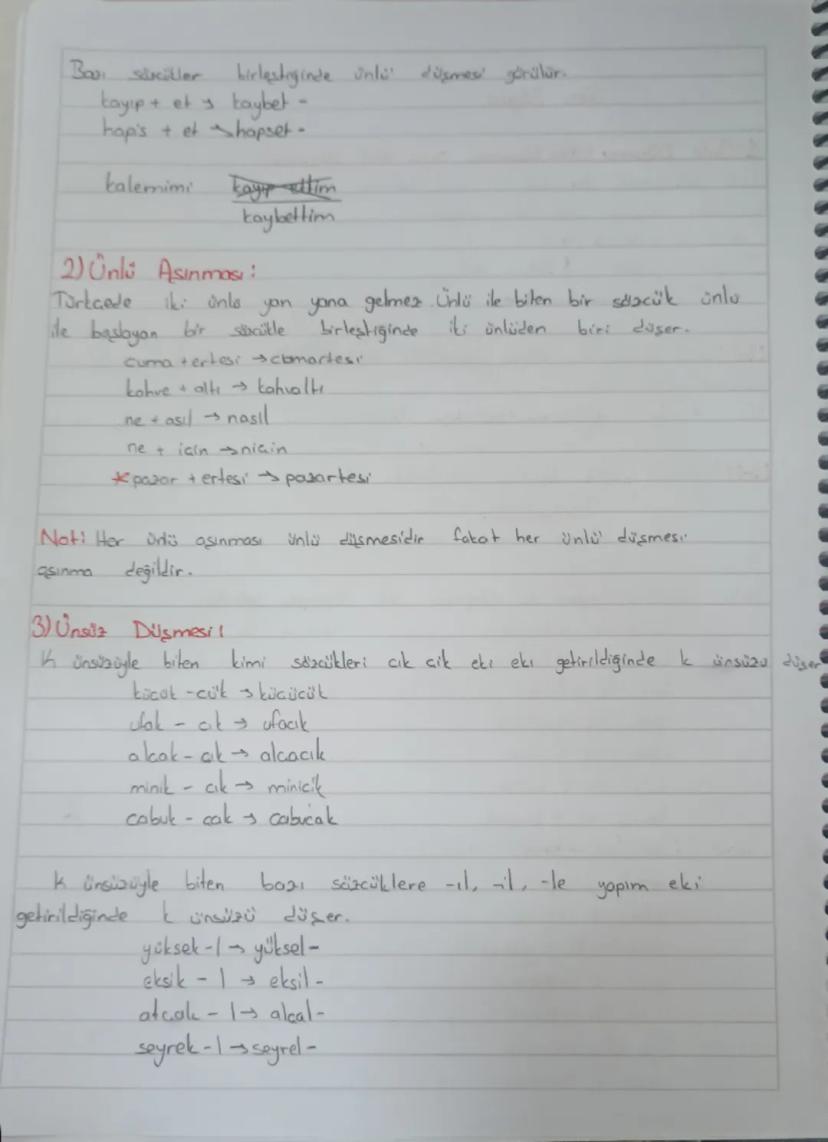 Bazı sözcükler birleştiğinde ünlü düşmesi görülür.
kayıp + et → kaybet -
hapis + et → hapset -
kalemimi kayıp ettim
kaybettim
2) Ünlü Aşınması:
Türkçede iki ünlü yan yana gelmez. Ünlü ile biten bir sözcük ünlü
ile başlayan bir sözcükle birleştiğinde iki ünlüden biri düşer.
cuma + ertesi → cumartesi
kahve + altı → kahvaltı
ne + asıl → nasıl
ne + için → niçin
*pazar + ertesi → pazartesi
Not: Her ünlü aşınması ünlü düşmesidir fakat her ünlü düşmesi
aşınma değildir.
3) Ünsüz Düşmesi:
K ünsüzüyle biten kimi sözcükleri cık cik eki eki getirildiğinde k ünsüzü düşer
küçük - cük → küçücük
ufak - cık → ufacık
alçak - cık → alçacık
minik - cik → minicik
çabuk - cak → çabucak
K ünsüzüyle biten bazı sözcüklere -ıl, -il, -le yapım eki
getirildiğinde k ünsüzü düşer.
yüksek - l → yüksel -
eksik - l → eksil -
alçak - l → alçal -
seyrek - l → seyrel -